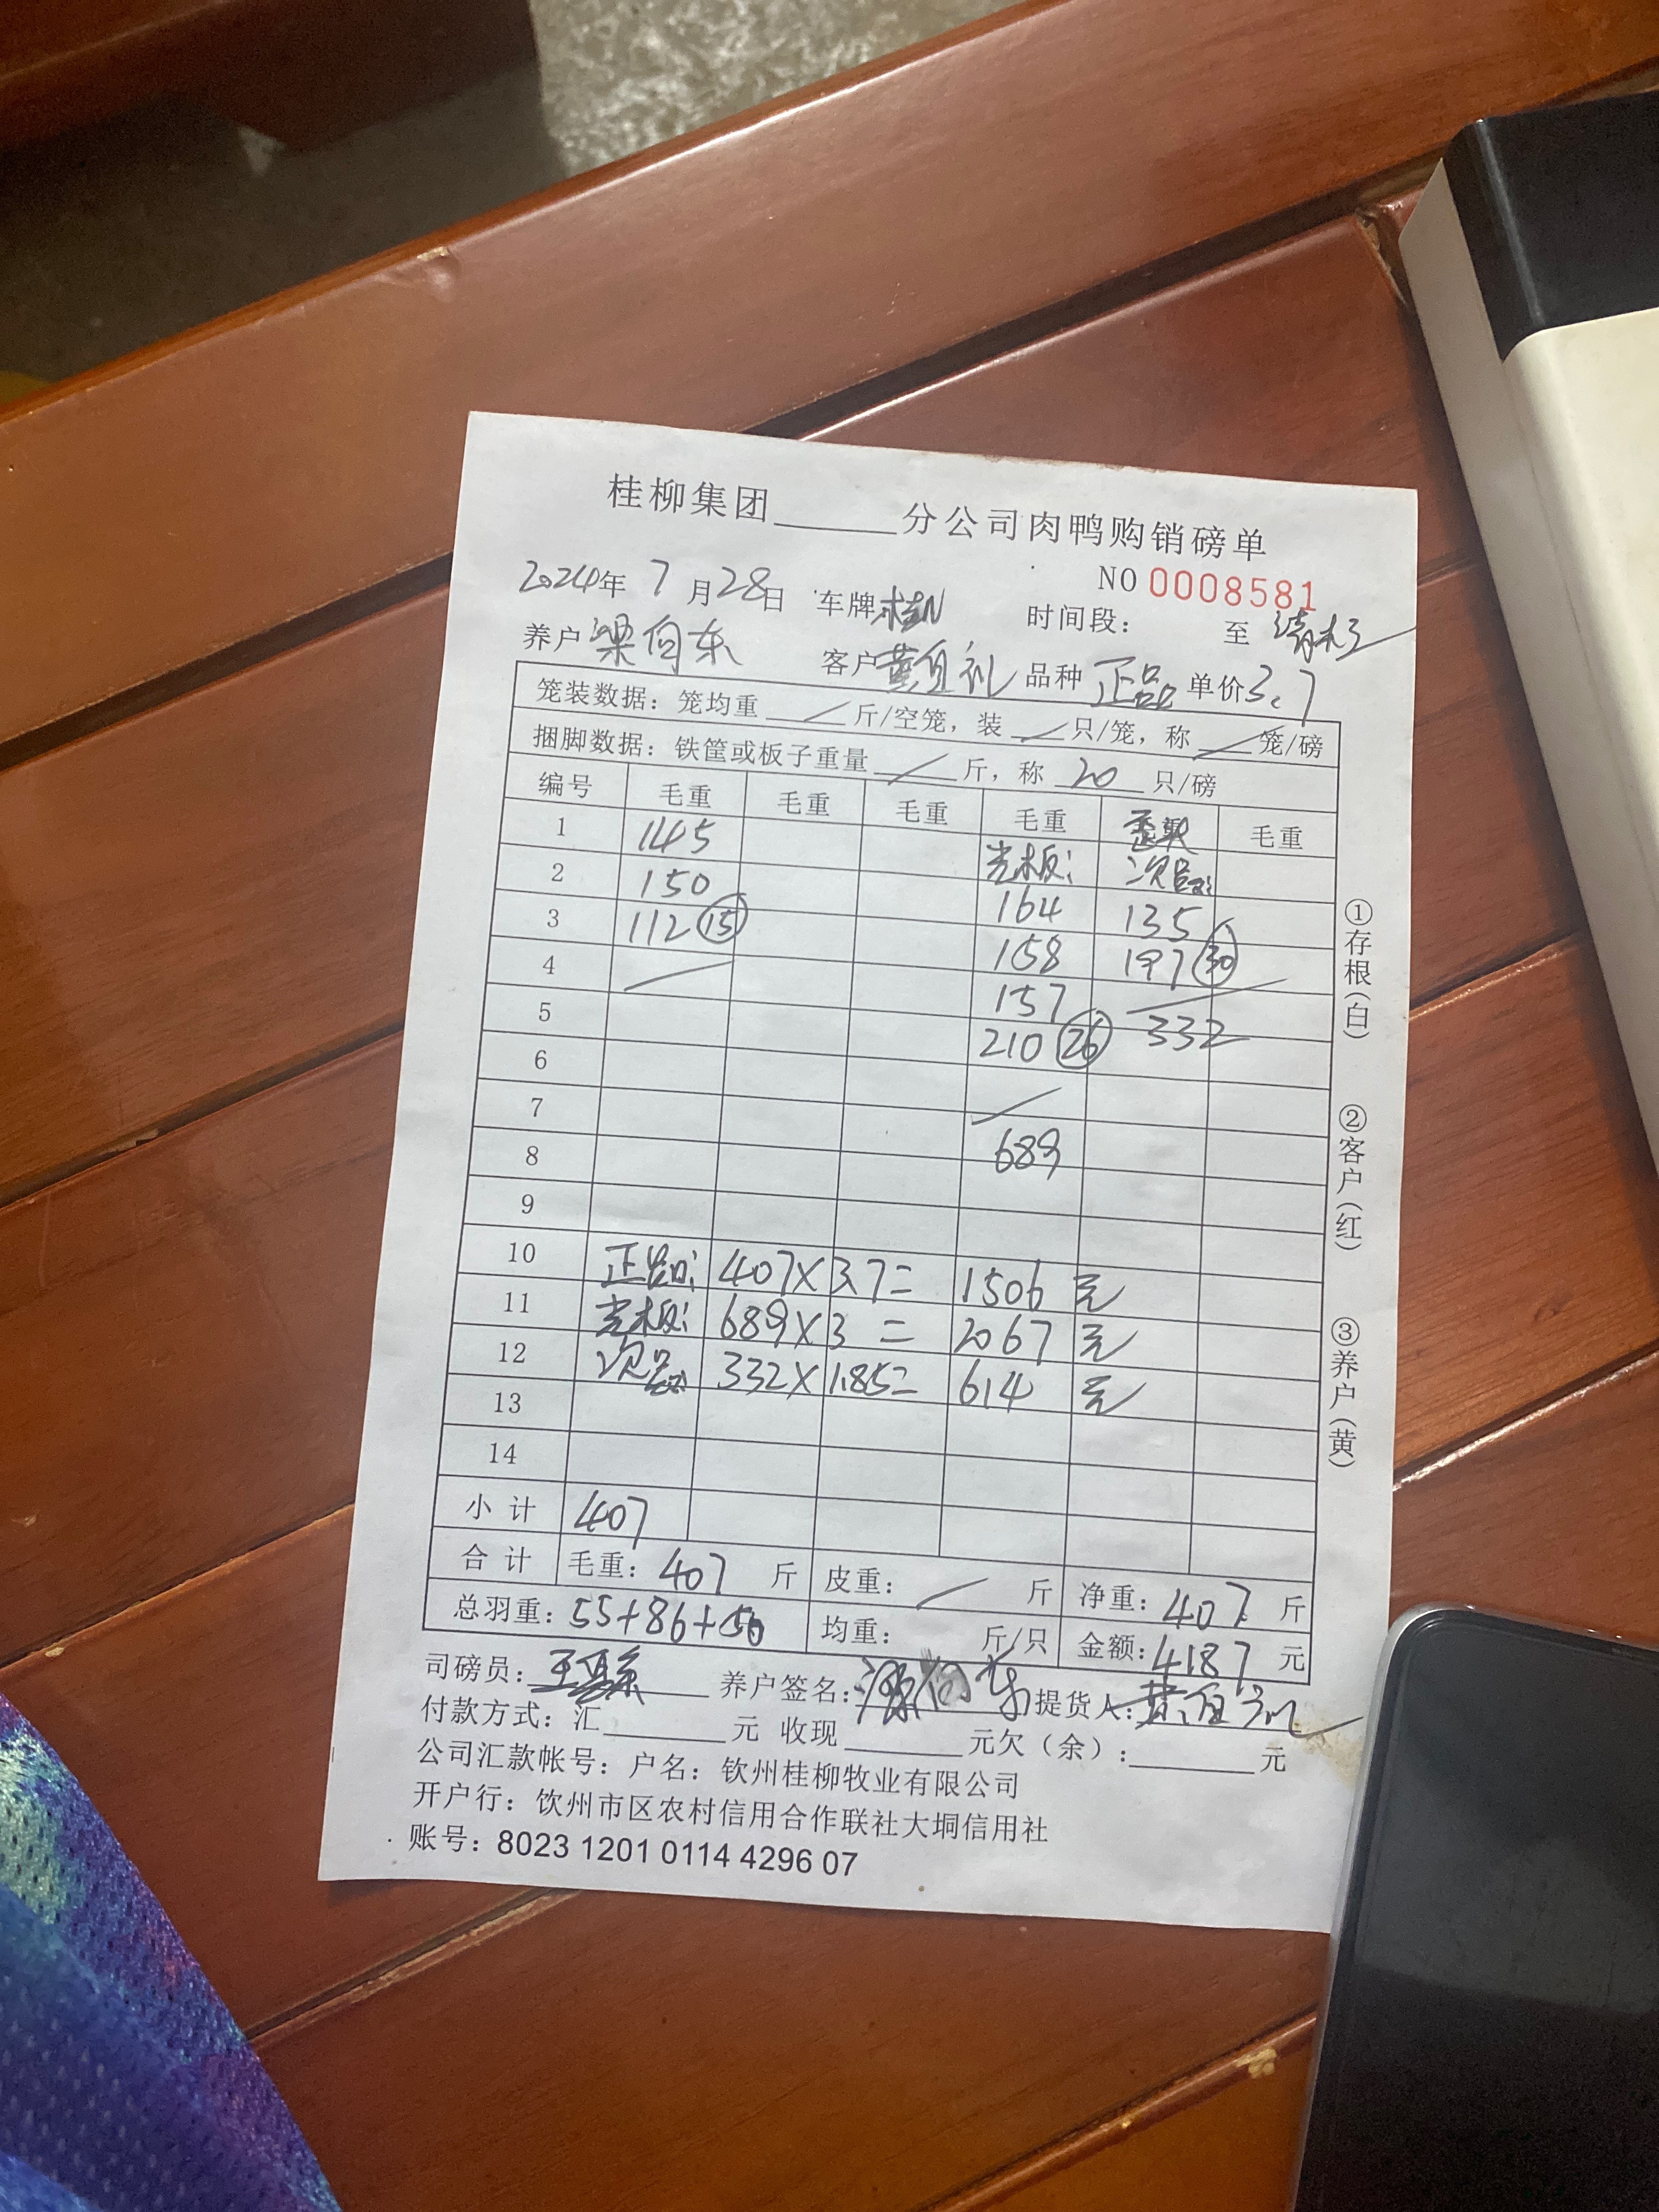 桂柳集团______分公司肉鸭购销磅单
NO 0008581
2024年 7 月 28日 车牌 时间段： 至
养户 梁自东 客户 黄自礼 品种 正品 单价 3.7
笼装数据：笼均重 / 斤/空笼，装 / 只/笼，称 / 笼/磅
捆脚数据：铁筐或板子重量 / 斤，称 20 只/磅
编号 毛重 毛重 毛重 毛重 毛重
1 145 光板： 次品：
2 150 164 135
3 112 ⑮ 158 197 ㉚
4 / 157 /
5 210 ㉖ 332
6
7 /
8 689
9
10 正品： 407×3.7= 1506 元
11 光板： 689×3 = 2067 元
12 次品： 332×1.85= 614 元
13
14
小计 407
合计 毛重：407 斤 皮重： / 斤 净重：407 斤
总羽重：55+86+50 均重： 斤/只 金额：4187 元
司磅员： 养户签名：梁自东 提货人：黄自礼
付款方式：汇______元 收现______元欠（余）：______元
公司汇款帐号：户名：钦州桂柳牧业有限公司
开户行：钦州市区农村信用合作联社大垌信用社
账号：8023 1201 0114 4296 07
①存根（白） ②客户（红） ③养户（黄）